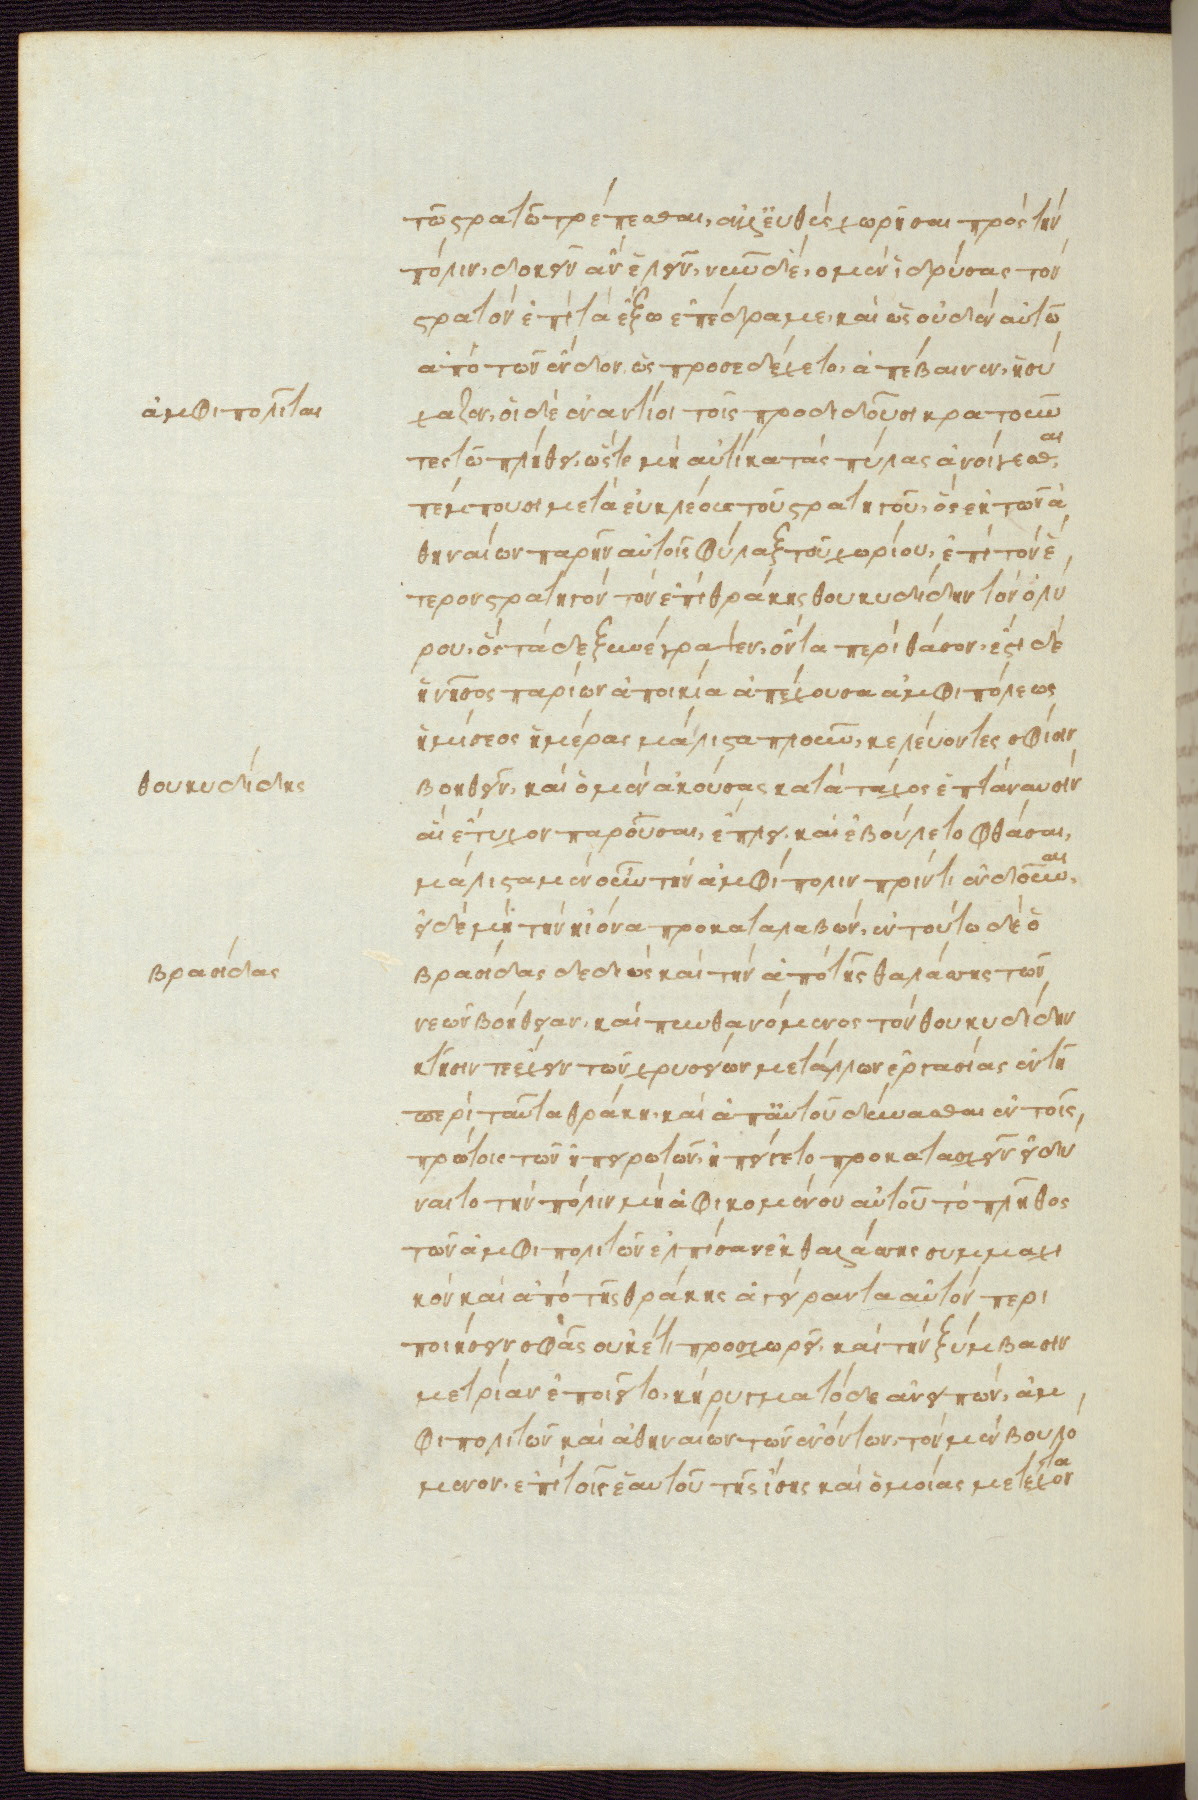 τῶ στρατῶ τρέπεσθαι, ἀλλ' εὐθὺς χωρῆσαι πρὸς τὴν
πόλιν, δοκεῖν ἂν ἑλεῖν, νῦν δὲ, ὁ μὲν ἱδρύσας τὸν
στρατὸν ἐπὶ τὰ ἔξω ἐπέδραμε, καὶ ὡς οὐδὲν αὐτῶ
ἀπὸ τῶν ἔνδον ὡς προσεδέχετο, ἀπέβαινεν, ἡσύ
ἀμφιπολῖται
χαζεν, οἱ δὲ ἐναντίοι τοῖς προδιδοῦσι κρατοῦν
τες τῶ πλήθει, ὥστε μὴ αὐτίκα τὰς πύλας ἀνοίγεσθαι,
πέμπουσι μετὰ εὐκλέους τοῦ στρατηγοῦ, ὃς ἐκ τῶν ἀ
θηναίων παρῆν αὐτοῖς φύλαξ τοῦ χωρίου, ἐπὶ τὸν ἕ
τερον στρατηγὸν τὸν ἐπὶ θράκης θουκυδίδην τὸν ὀλύ
ρου, ὃς τάδε ξυνέγραψεν, ὄντα περὶ θάσον, ἔστι δὲ
ἡ νῆσος παρίων ἀποικία ἀπέχουσα ἀμφιπόλεως
ἡμίσεος ἡμέρας μάλιστα πλοῦν, κελεύοντες σφίσιν
θουκυδίδης
βοηθεῖν, καὶ ὁ μὲν ἀκούσας κατὰ τάχος ἑπτὰ ναυσὶν
αἳ ἔτυχον παροῦσαι, ἔπλει, καὶ ἐβούλετο φθάσαι,
μάλιστα μὲν οὖν τὴν ἀμφίπολιν πρίν τι ἐνδοῦναι,
εἰ δὲ μὴ τὴν ἠιόνα προκαταλαβών, ἐν τούτω δὲ ὁ
βρασίδας
βρασίδας δεδιὼς καὶ τὴν ἀπὸ τῆς θαλάσσης τῶν
νεῶν βοήθειαν, καὶ πυνθανόμενος τὸν θουκυδίδην
κτῆσίν τε ἔχειν τῶν χρυσείων μετάλλων ἐργασίας ἐν τῆ
περὶ ταῦτα θράκη, καὶ ἀπ' αὐτοῦ δύνασθαι ἐν τοῖς
πρώτοις τῶν ἠπειρωτῶν, ἠπείγετο προκατασχεῖν εἰ δύ
ναιτο τὴν πόλιν μὴ ἀφικομένου αὐτοῦ τὸ πλῆθος
τῶν ἀμφιπολιτῶν ἐλπίσαν ἐκ θαλάσσης συμμαχι
κὸν καὶ ἀπὸ τῆς θράκης ἀγείραντα αὐτὸν περι
ποιήσειν σφᾶς οὐκέτι προσχωρεῖ, καὶ τὴν ξύμβασιν
μετρίαν ἐποιεῖτο, κήρυγμα τόδε ἀνειπών, ἀμ
φιπολιτῶν καὶ ἀθηναίων τῶν ἐνόντων, τὸν μὲν βουλό
μενον, ἐπὶ τοῖς ἑαυτοῦ τῆς ἴσης καὶ ὁμοίας μετέχοντα